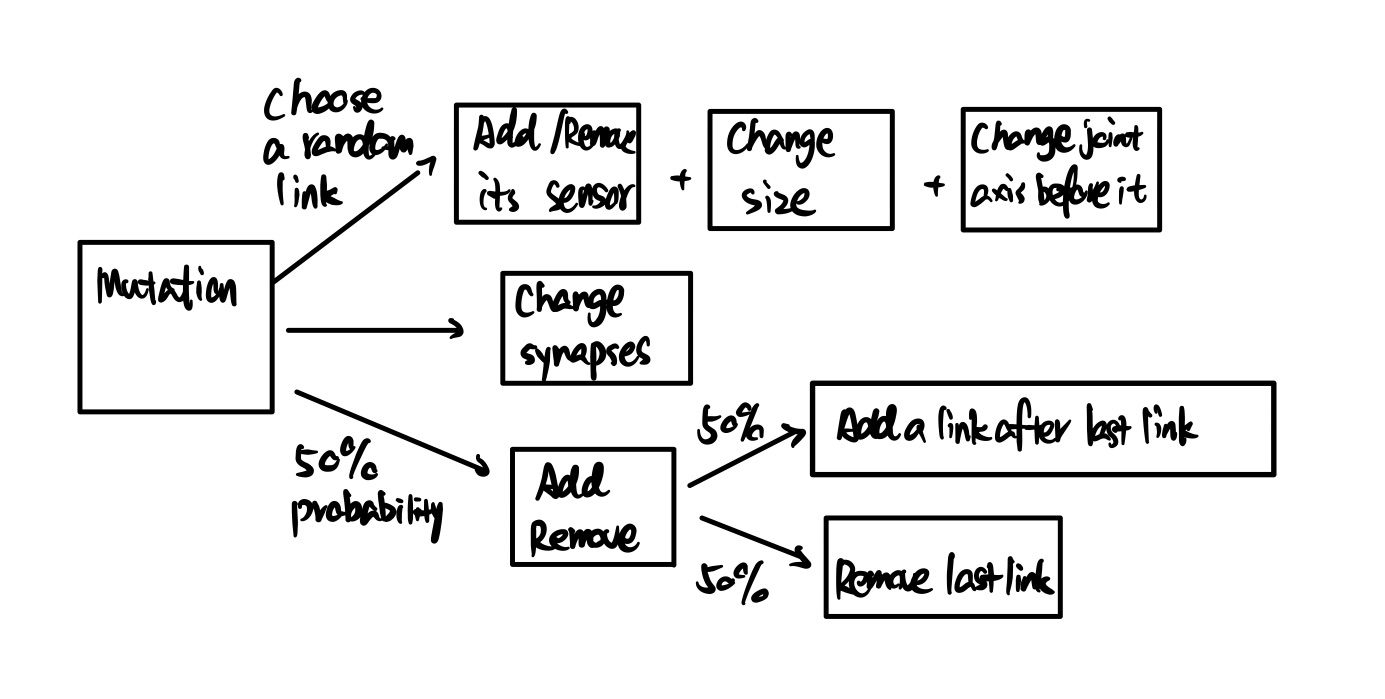 Choose
a random
link
Add /Remove
its sensor
+
Change
size
+
Change joint
axis before it
Mutation
Change
synapses
50%
probability
Add
Remove
50%
Add a link after last link
50%
Remove last link